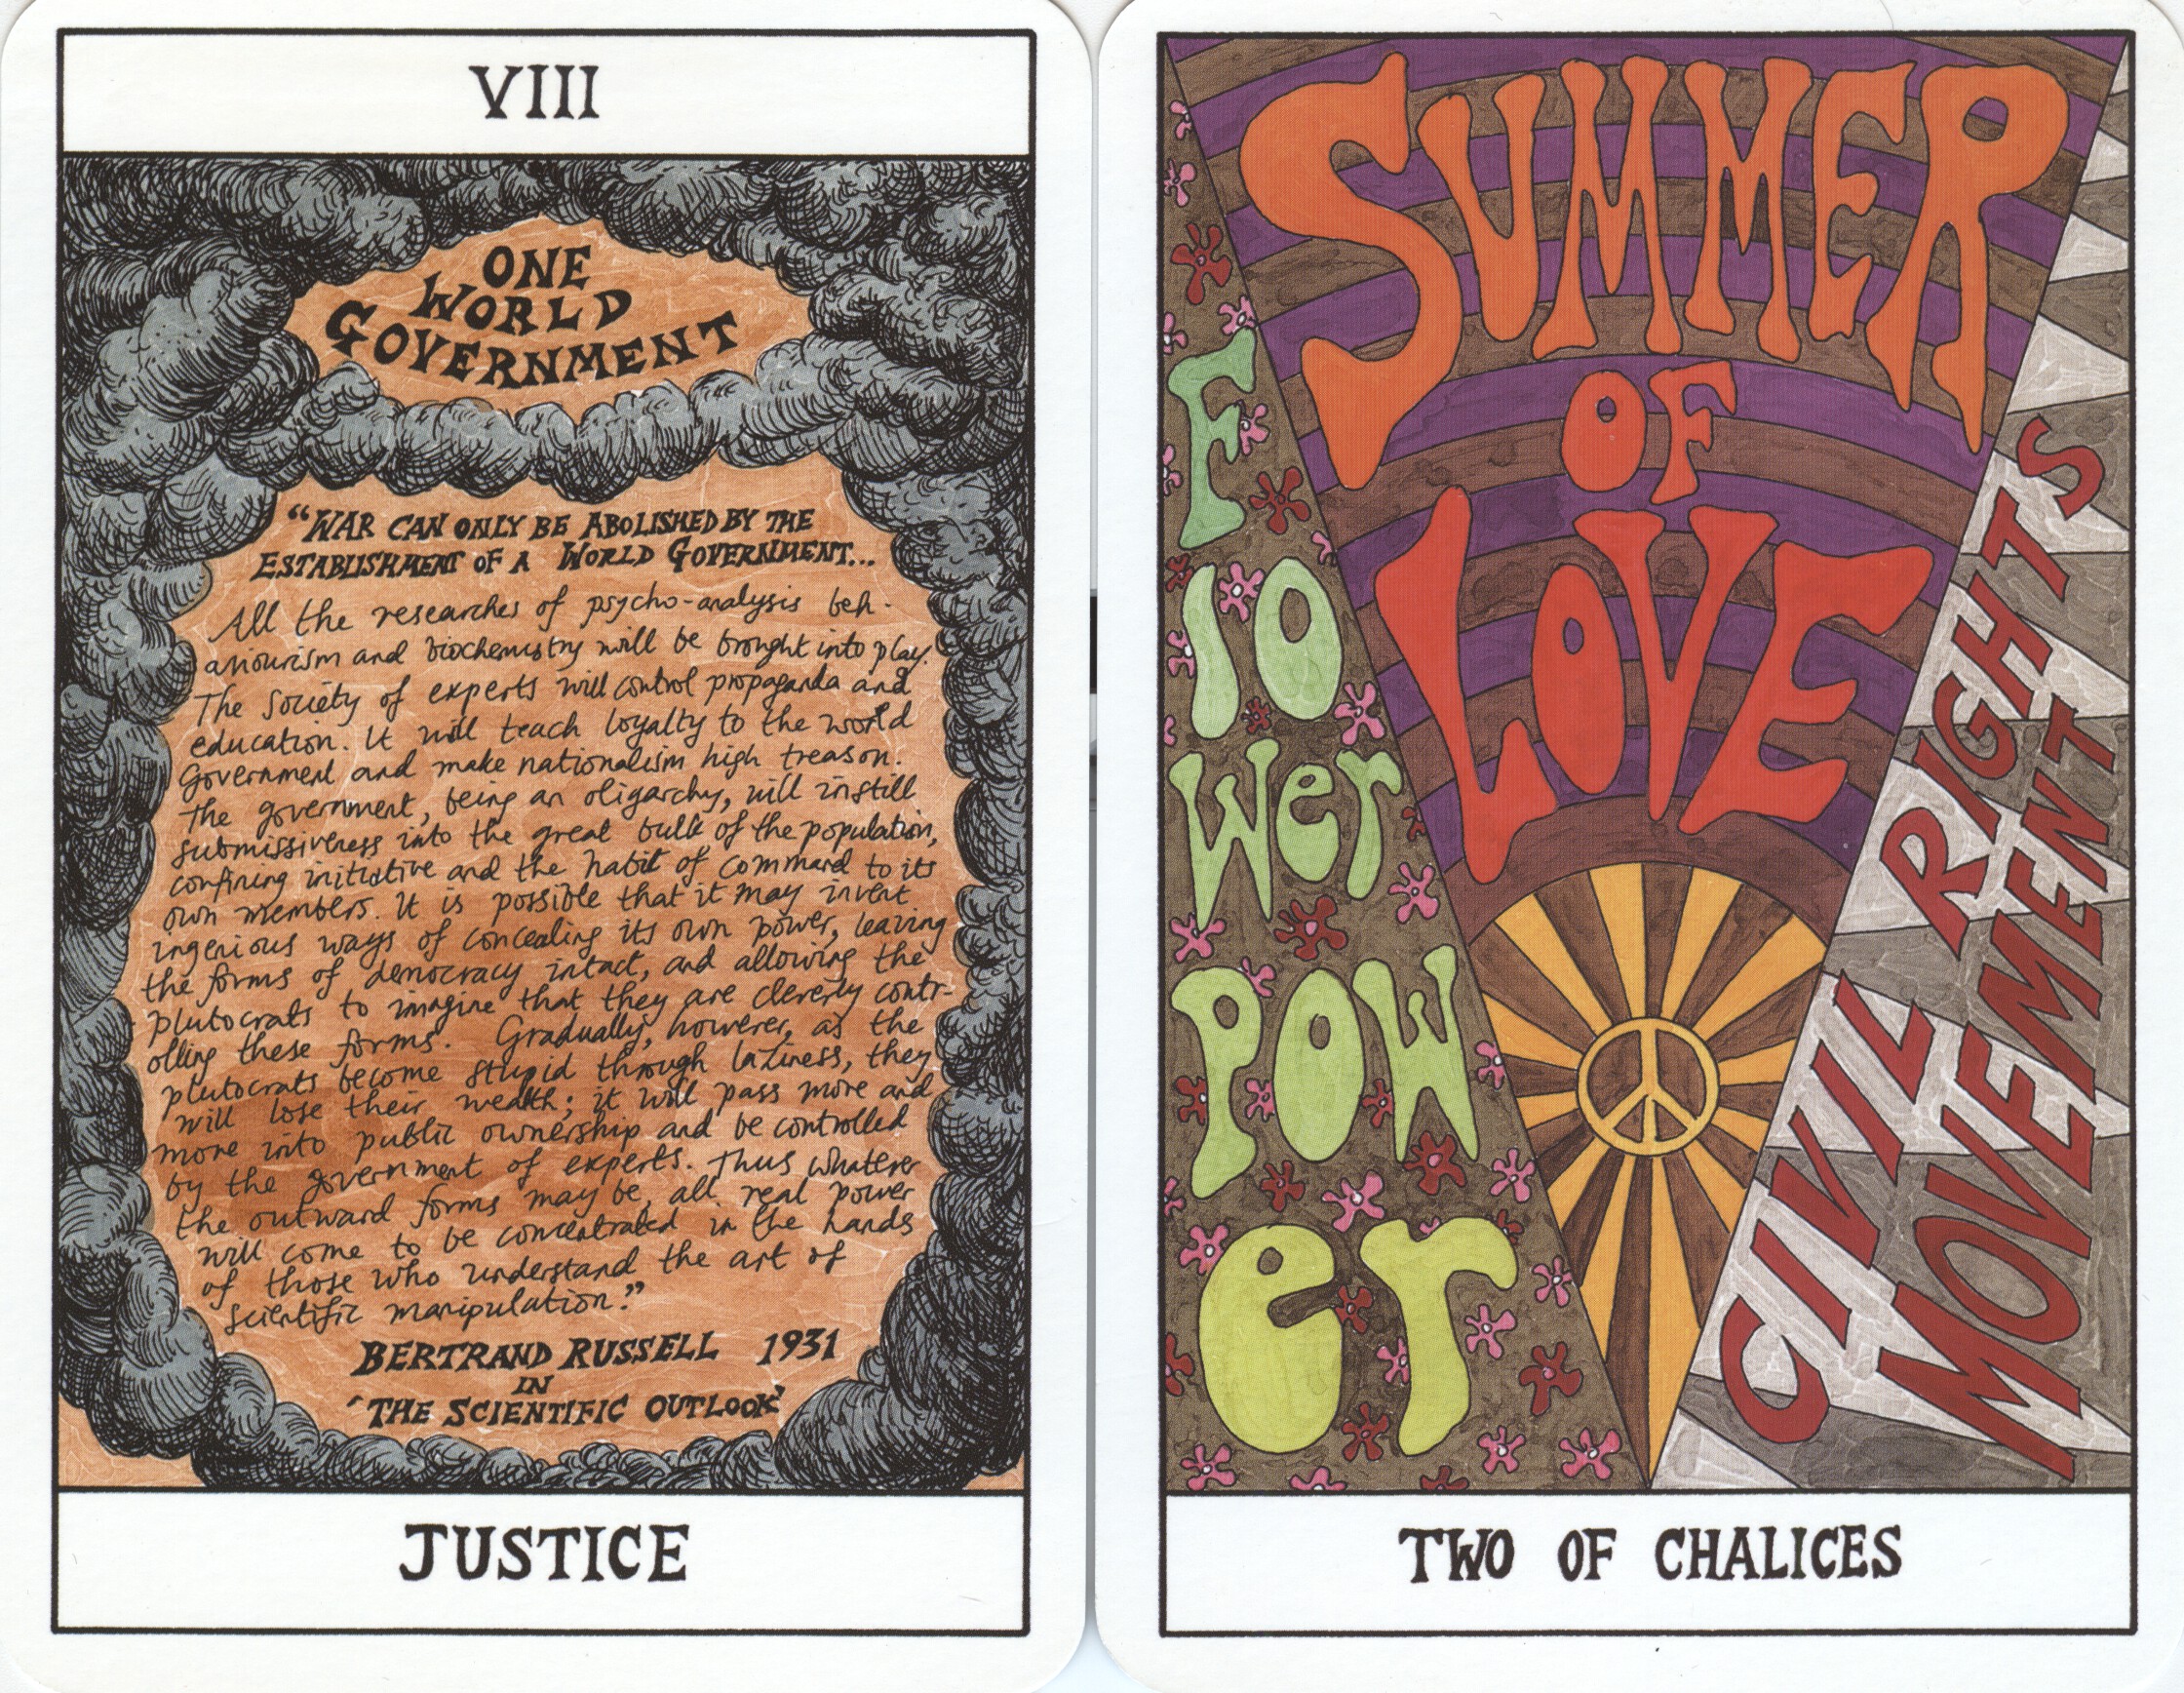 VIII
ONE
WORLD
GOVERNMENT
"WAR CAN ONLY BE ABOLISHED BY THE
ESTABLISHMENT OF A WORLD GOVERNMENT...
All the researches of psycho-analysis beh-
aviourism and biochemistry will be brought into play.
The Society of experts will control propaganda and
education. It will teach loyalty to the world
Government and make nationalism high treason.
The government, being an oligarchy, will instill
submissiveness into the great bulk of the population,
confining initiative and the habit of command to its
own members. It is possible that it may invent
ingenious ways of concealing its own power, leaving
the forms of democracy intact, and allowing the
plutocrats to imagine that they are cleverly contr-
olling these forms. Gradually, however, as the
plutocrats become stupid through laziness, they
will lose their wealth; it will pass more and
more into public ownership and be controlled
by the government of experts. Thus whatever
the outward forms may be, all real power
will come to be concentrated in the hands
of those who understand the art of
scientific manipulation."
BERTRAND RUSSELL 1931
IN
'THE SCIENTIFIC OUTLOOK'
JUSTICE
SUMMER
OF
LOVE
Flower
Power
CIVIL RIGHTS
MOVEMENT
TWO OF CHALICES